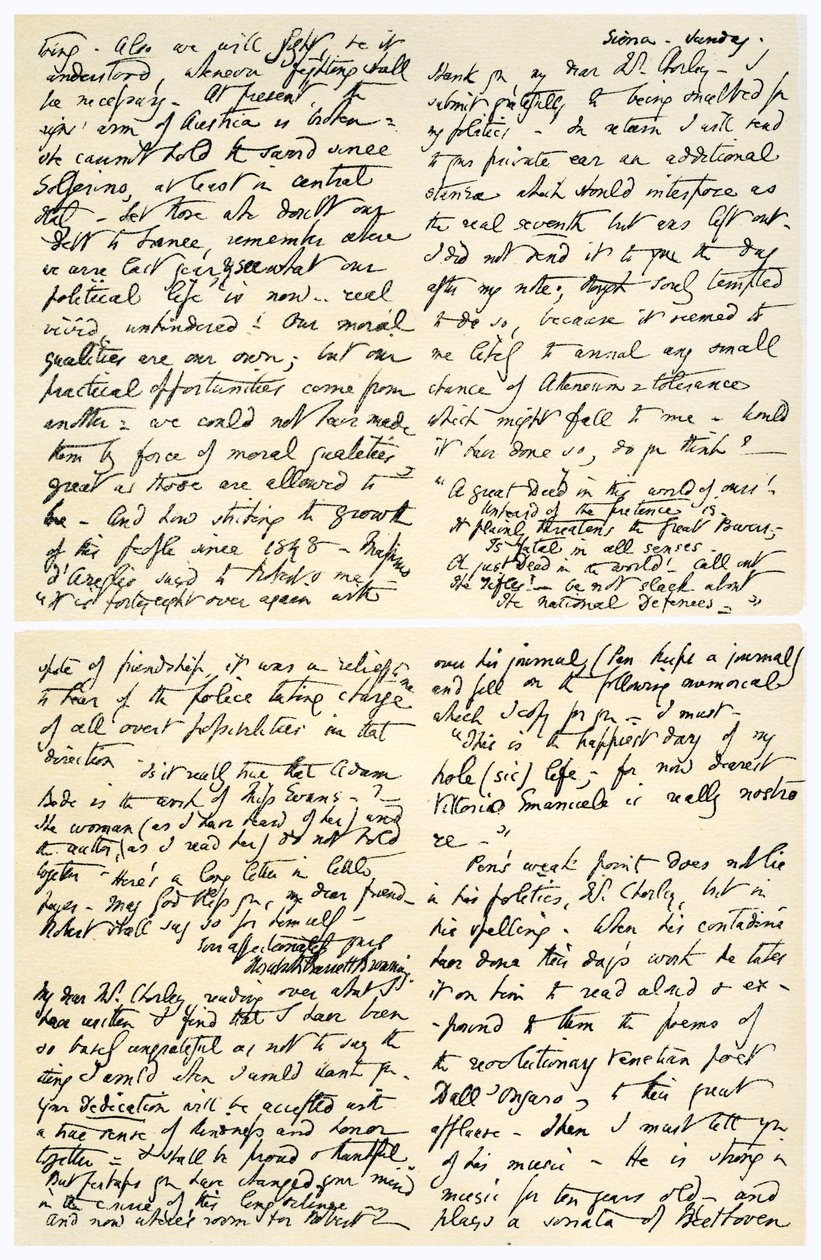 thing - Also we will fight, be it
understood, whenever fighting shall
be necessary - At present, the
arm of Austria is broken =
she cannot hold the sword since
Solferino, at least in central
Italy - Let those who doubt our
debt to France, remember where
we were last year, & see what our
political life is now - real
vivid, unhindered! Our moral
qualities are our own; but our
practical opportunities come from
another = we could not have made
them by force of moral qualities
great as those are allowed to
be - And how striking the growth
of this people since 1848 - Massimo
d'Azeglio said to Robert & me -
"It is fortyeight over again with
Siena - Sunday.
Thank you, my dear Mr. Chorley - I
submit gratefully to being snubbed for
my politics - In return I will send
to your private ear an additional
stanza which should interpose as
the real seventh but was left out -
I did not send it to you the day
after my note, though sorely tempted
to do so, because it seemed to
me likely to annul any small
chance of Ateneum = tolerance
which might fall to me - Would
it have done so, do you think? -
"A great Deed in this world of ours!
Unheard of the pretence is -
It plainly threatens the Great Powers;
Is fatal in all senses -
A just Deed in the world! - Call out
the rifles! - be not slack about
The national Defences - "
spite of friendship, it was a relief to me
to hear of the police taking charge
of all overt possibilities in that
direction - Is it really true that Adam
Bede is the work of Miss Evans - ? -
The woman (as I have heard of her) and
the author (as I read her) do not hold
together - Here's a long letter in little
pages - May God bless you, my dear friend -
Robert shall say so for himself -
Your affectionately yours
Elizabeth Barrett Browning -
My dear Mr. Chorley, reading over what I
have written I find that I have been
so basely ungrateful as not to say the
thing I would when I would thank you.
Your Dedication will be accepted with
a true sense of kindness and honor
together = I shall be proud & thankful
But perhaps you have changed your mind
in the course of this long silence
and now where's room for Robert? -
over his journal, (Pen keeps a journal)
and fell on the following memorial
which I copy for you - I must -
"This is the happiest day of my
hole (sic) life; - for now dearest
Vittorio Emanuele is really nostro
re - "
Pen's weak point does not lie
in his politics, Mr. Chorley, but in
his spelling - When his contadini
have done their day's work he takes
it on him to read aloud & ex-
-pound to them the poems of
the revolutionary Venetian poet
Dall' Ongaro, to their great
applause - Then I must tell you
of his music - He is strong in
music for ten years old - and
plays a sonata of Beethoven